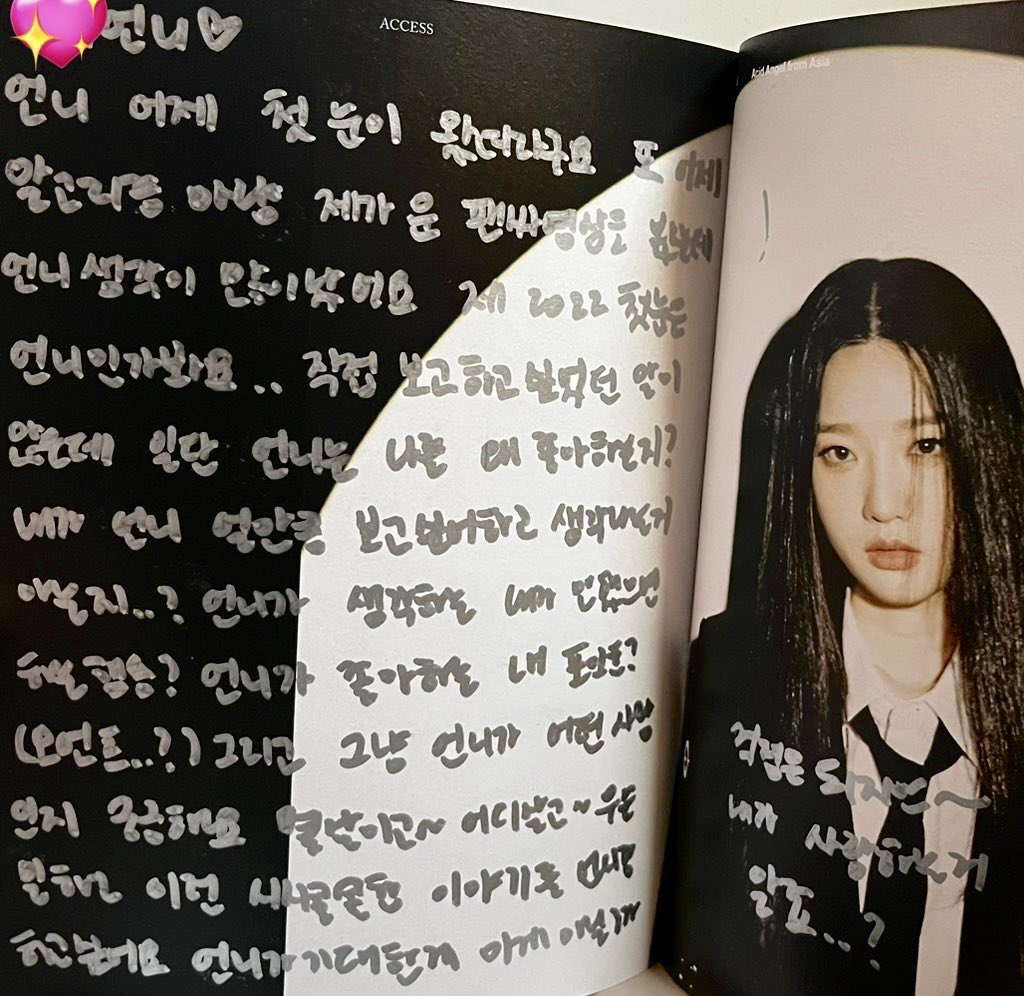 언니♡
ACCESS
언니 어제 첫눈이 왔더라구요 또 어제
알고리즘 마냥 제가 운 팬싸영상도 봤는데
언니 생각이 많이 났어요 제 2022 첫눈은
언니인가봐요.. 직접 보고하고싶었던 말이
많은데 일단 언니는 나를 왜 좋아하는지?
내가 언니 얼만큼 보고싶어하고 생각하는거
아는지..? 언니가 생각하는 내가 없으면
언니가 좋아하는 내 포인트?
(모먼트..?) 그리고 그냥 언니가 어떤 사람
인지 궁금해요 몇살이고~ 어디살고~ 무슨
일하고 이런 시시콜콜한 이야기를 언니랑
하고싶어요 언니가 기대한게 이게 아닐까
Acid Angel from Asia
!
걱정은 되지만~
내가 사랑하는거
알죠..?